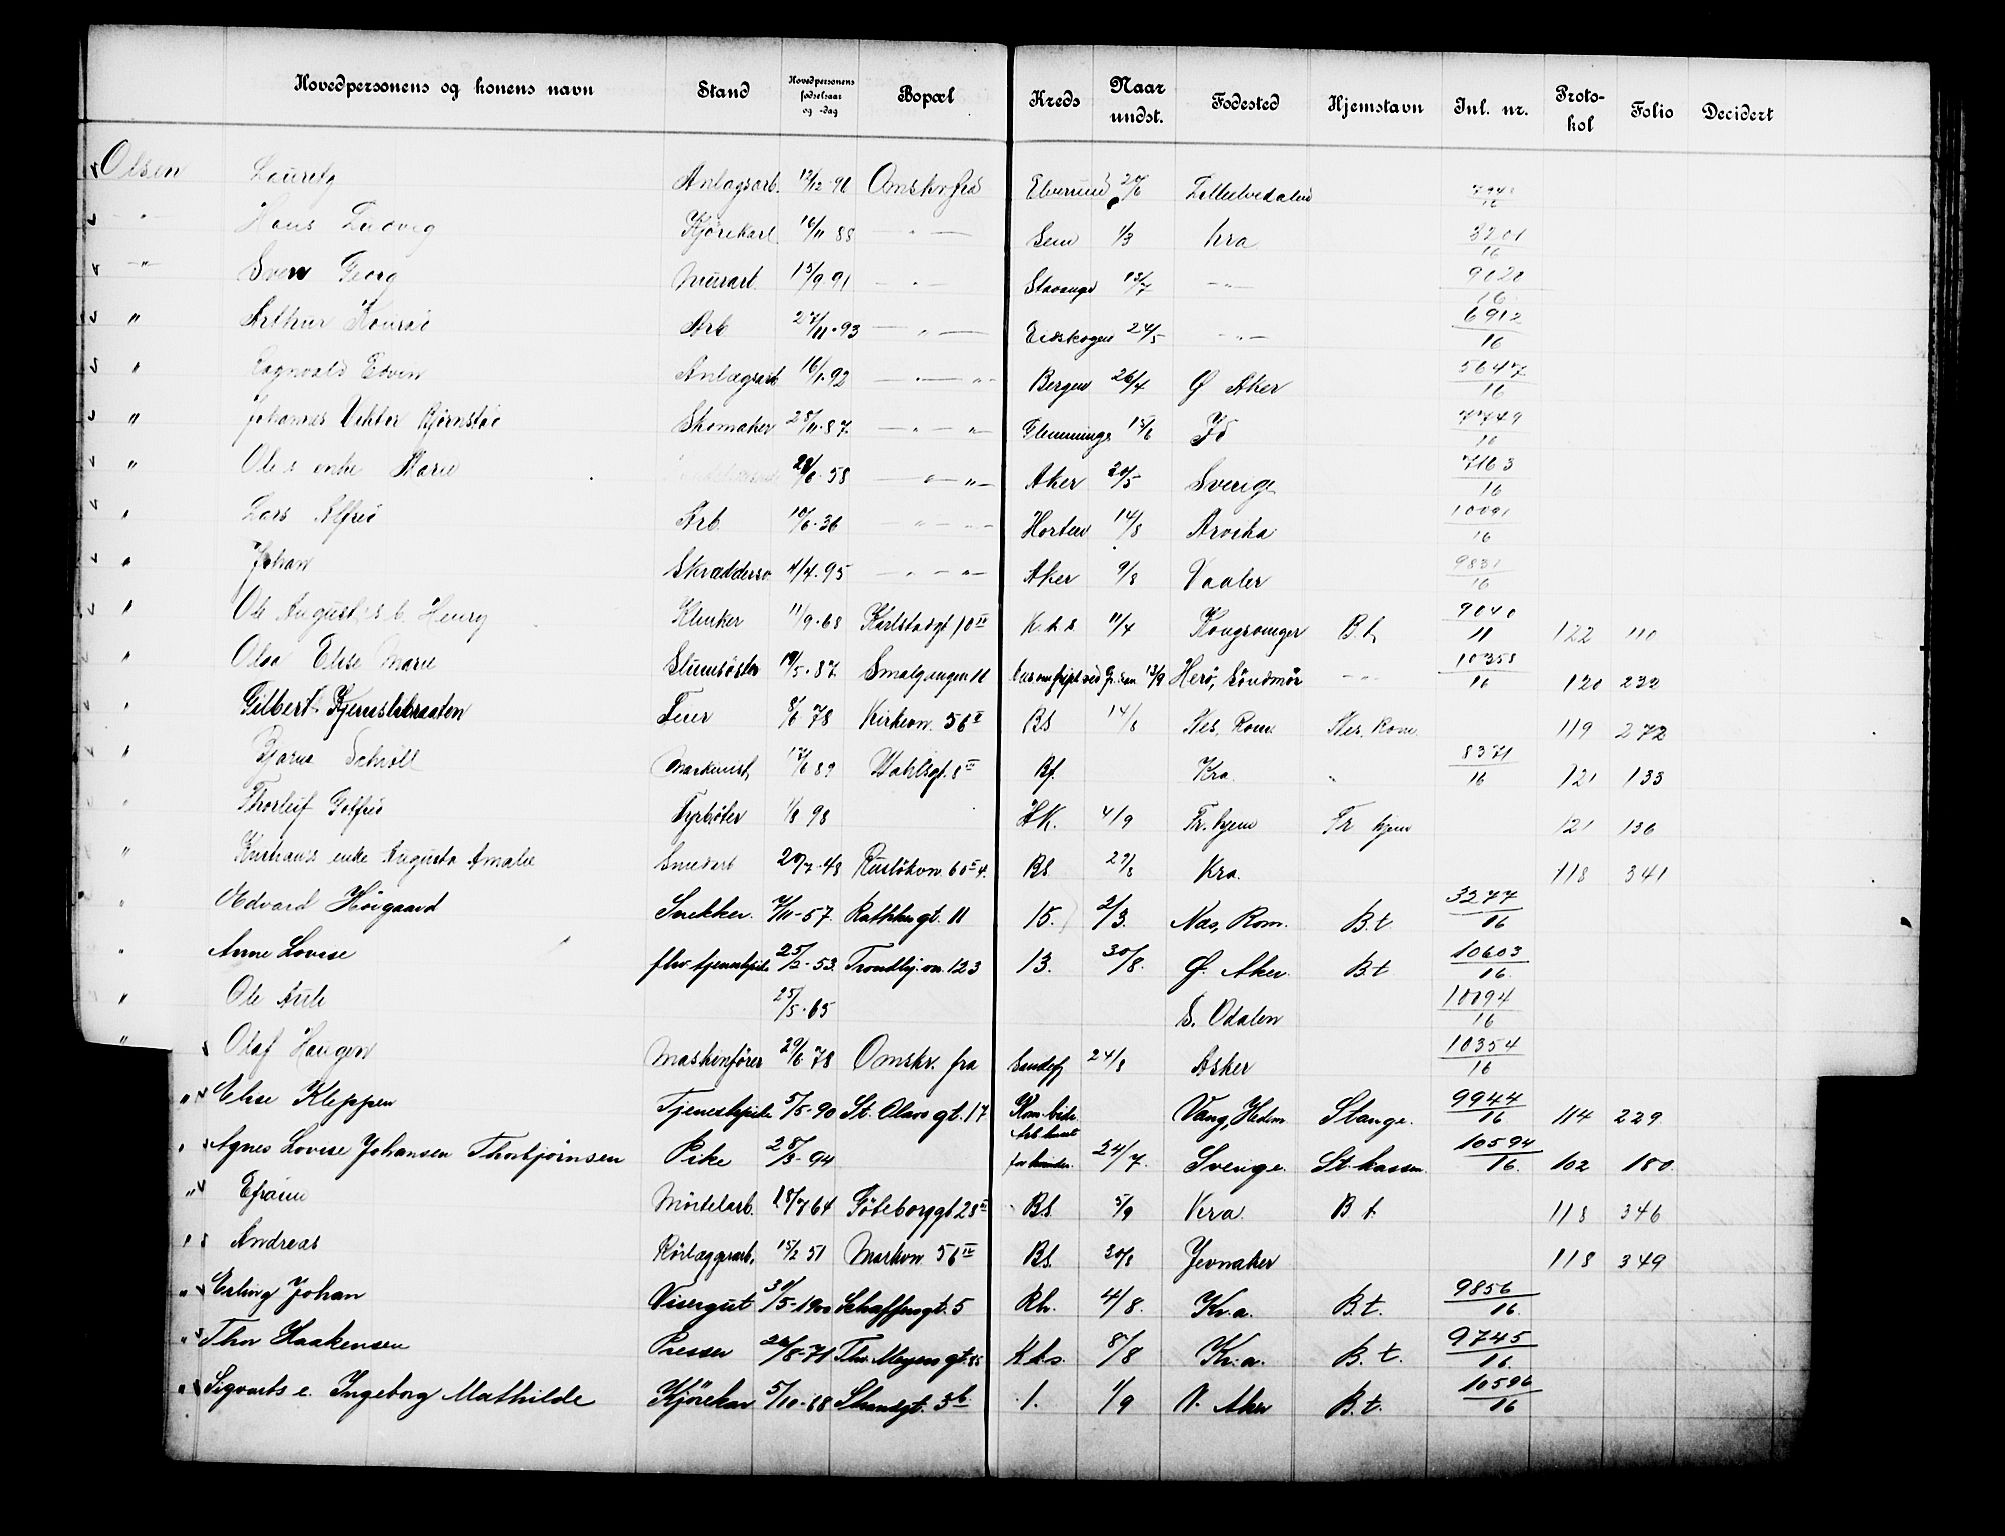 Hovedpersonens og konens navn Stand Hovedpersonens fødselsaar og -dag Bopæl Kreds Naar undst. Fødested Hjemstavn Jnl. nr. Protokol Folio Decidert
Olsen Lauritz Anlagsarb. 12/12-90 Omskr fra Elverum 20/6 16
" Hans Ludvig Kjørekarl 16/11 88 — " — Sem 1/3 Kra 3201/16
" Georg Murarb. 15/9 91 — " — Stavanger 13/7 — " — 9020/16
" Arthur Konrad Arb 27/11-93 — " — Eidskogen 24/5 — " — 6912/16
" Ragnvald Edvin Anlægsarb 16/1-92 — " — " Bergen 26/4 Ø Aker 5647/16
" Johannes Viktor Bjørnstad Skomaker 28/11-87. — " — " Glemminge 13/6 Id 7749/16
" Ole s enke Marie 28/6-58 — " — " Aker 20/5 Sverige 7163/16
" Lars Alfred Arb. 10/6-36 — " — " Horten 14/8 Arvika 10091/16
" Johan Skræddersv. 4/4-95 — " — " Aker 9/8 Vaaler 9831/16
" Ole August s b. Henry Klinker 11/9-68 Karlstadgt 10 IV K.h.s 11/4 Kongsvinger B.t. 9040/11 122 110
" Olea Elise Marie Stuesøster 19/5-87. Smalgangen 11 13/9 Herø, Søndmør — " — 10358/16 120 232
" Gilbert Feier 8/6 78 Kirkevn. 56 II BS 14/8 Nes, Rom. Nes. Rom. 119 272
" Bjarne Schiøll Maskinist 17/6 89 Dahlsgt. 8 IV Bf. Kra. " 8371/16 121 133
" Thorleif Gotfred Fyrbøter 1/8 98 HK. 4/9 Tr. hjem Tr hjem 121 136
" enke Augusta Amalie Smedarb 20/7-48 Ruseløkvn 60 II 4. BS 29/8 Kra. 118 341
" Edvard Høigaard Snekker. 7/11-57. Rathkesgt. 11 15. 2/3. Næs, Rom. B.t. 3277/16
" Anne Lovise fhv tjenestepike 25/2-53. Trondhj.vn. 123 13. 30/8. Ø. Aker. B.t 10603/16.
" Ole Aule 25/5-65 S. Odalen 10094/16
" Olaf Haugen Maskinfører 29/6 78 Omskr. fra Sandefj 24/8 Asker 10354/16
" Elise Kleppen Tjenestepike 5/5-90 St. Olavs gt. 17 Vang, Hedm Stange. 9944/16 114 229.
" Agnes Lovise Johansen Thorbjørnsen Pike 28/3-94 for kvinder. 24/7. Sverige. St. kassen. 10594/16. 102 180.
" Efraim Mørtelarb. 18/7 64 Gøteborggt 28 II BS. 5/9 Kra. B t. 118 346
" Andreas Rørlæggerarb. 15/2 51 Markvn. 56 IV BS. 30/8 Jevnaker 118 349
" Erling Johan Visergut 30/5-1900 Schaffensgt. 5 Rh. 4/8. Kr.a. B.t. 9856/16.
" Thor Haakensen Presser 26/8-71 Thv. Meyers gt. 85 K.h.s. 8/8 Kr.a. B. t. 9745/16.
" Sigvarts e. Ingeborg Mathilde Kjørekar 5/10-68 Strandgt. 3 b. 1. 1/9 V. Aker B.t. 10596/16